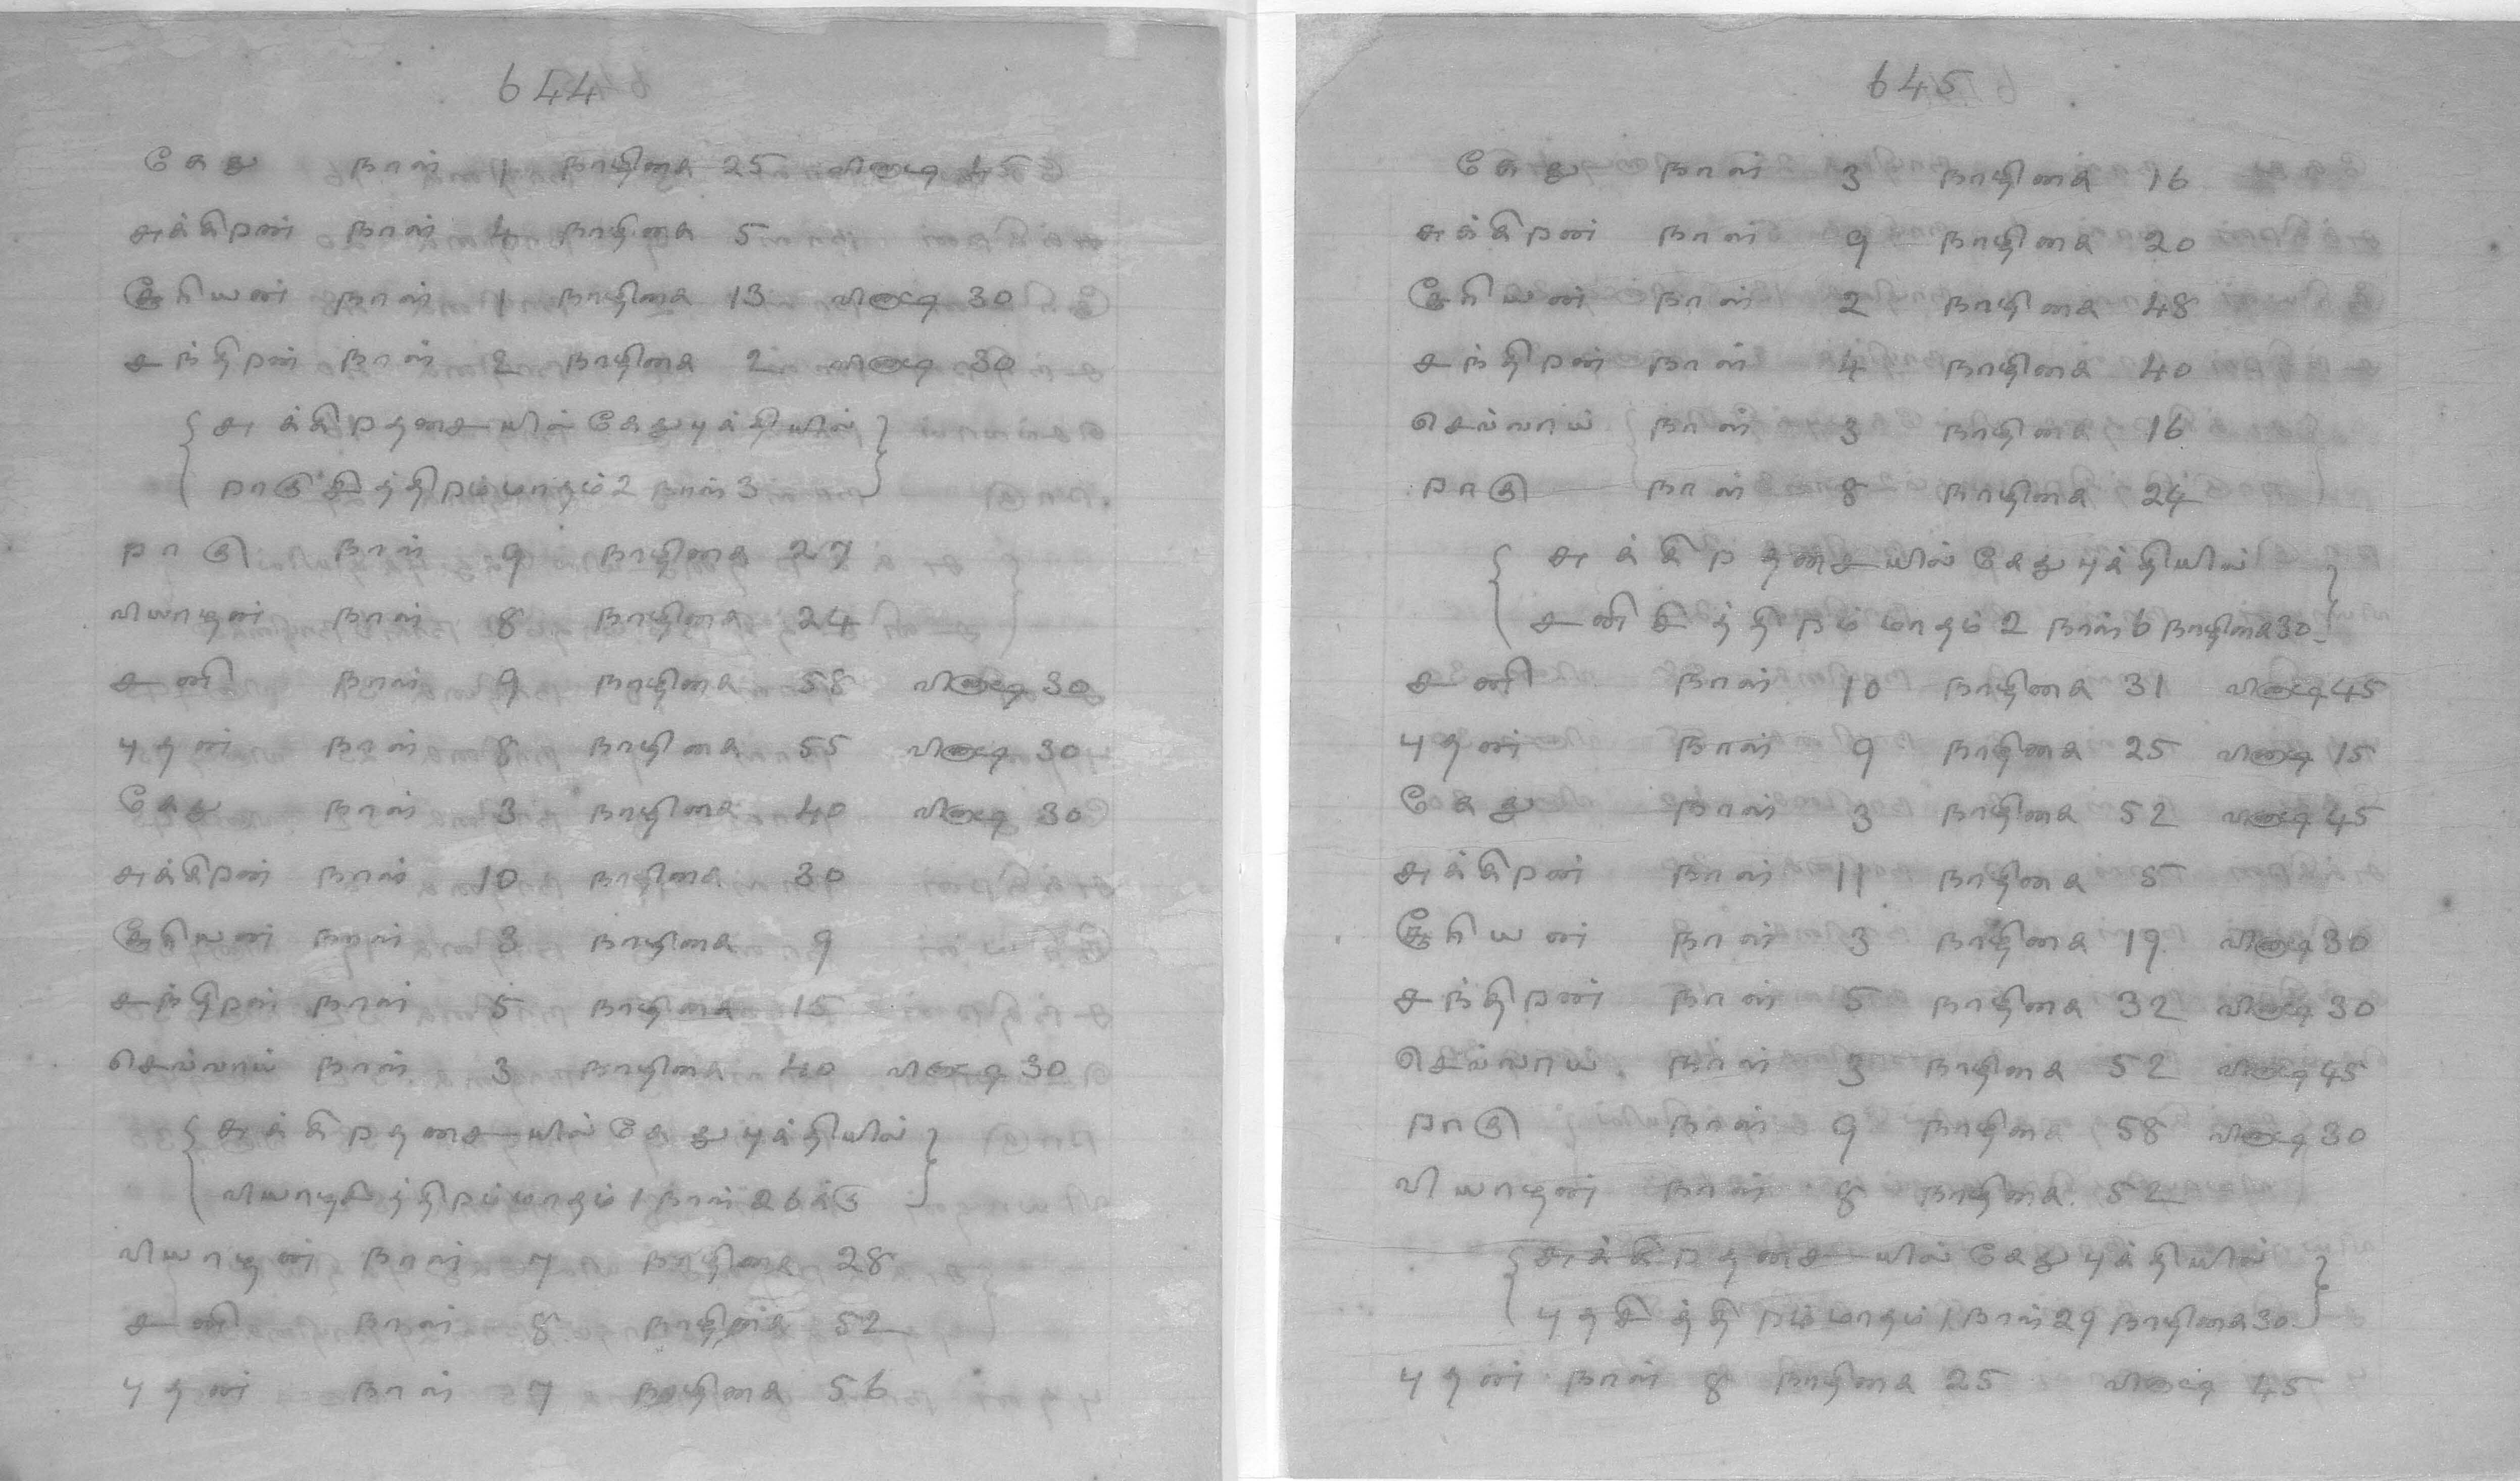 644
கேது நாள் 1 நாழிகை 25 வினாடி 45
சுக்கிரன் நாள் 4 நாழிகை 5
சூரியன் நாள் 1 நாழிகை 13 வினாடி 30
சந்திரன் நாள் 2 நாழிகை 2 வினாடி 30
{ சுக்கிரதசையில் கேதுபுக்தியில் }
{ ராகுசித்திரம் மாதம் 2 நாள் 3 }
ராகு நாள் 9 நாழிகை 27
வியாழன் நாள் 8 நாழிகை 24
சனி நாள் 9 நாழிகை 58 வினாடி 30
புதன் நாள் 8 நாழிகை 55 வினாடி 30
கேது நாள் 3 நாழிகை 40 வினாடி 30
சுக்கிரன் நாள் 10 நாழிகை 30
சூரியன் நாள் 3 நாழிகை 9
சந்திரன் நாள் 5 நாழிகை 15
செவ்வாய் நாள் 3 நாழிகை 40 வினாடி 30
{ சுக்கிரதசையில் கேதுபுக்தியில் }
{ வியாழசித்திரம் மாதம் 1 நாள் 26க்கு }
வியாழன் நாள் 7 நாழிகை 28
சனி நாள் 8 நாழிகை 52
புதன் நாள் 7 நாழிகை 56
645
கேது நாள் 3 நாழிகை 16
சுக்கிரன் நாள் 9 நாழிகை 20
சூரியன் நாள் 2 நாழிகை 48
சந்திரன் நாள் 4 நாழிகை 40
செவ்வாய் நாள் 3 நாழிகை 16
ராகு நாள் 8 நாழிகை 24
{ சுக்கிரதசையில் கேதுபுக்தியில் }
{ சனிசித்திரம் மாதம் 2 நாள் 6 நாழிகை 30 }
சனி நாள் 10 நாழிகை 31 வினாடி 45
புதன் நாள் 9 நாழிகை 25 வினாடி 15
கேது நாள் 3 நாழிகை 52 வினாடி 45
சுக்கிரன் நாள் 11 நாழிகை 5
சூரியன் நாள் 3 நாழிகை 19 வினாடி 30
சந்திரன் நாள் 5 நாழிகை 32 வினாடி 30
செவ்வாய் நாள் 3 நாழிகை 52 வினாடி 45
ராகு நாள் 9 நாழிகை 58 வினாடி 30
வியாழன் நாள் 8 நாழிகை 52
{ சுக்கிரதசையில் கேதுபுக்தியில் }
{ புதசித்திரம் மாதம் 1 நாள் 29 நாழிகை 30 }
புதன் நாள் 8 நாழிகை 25 வினாடி 45